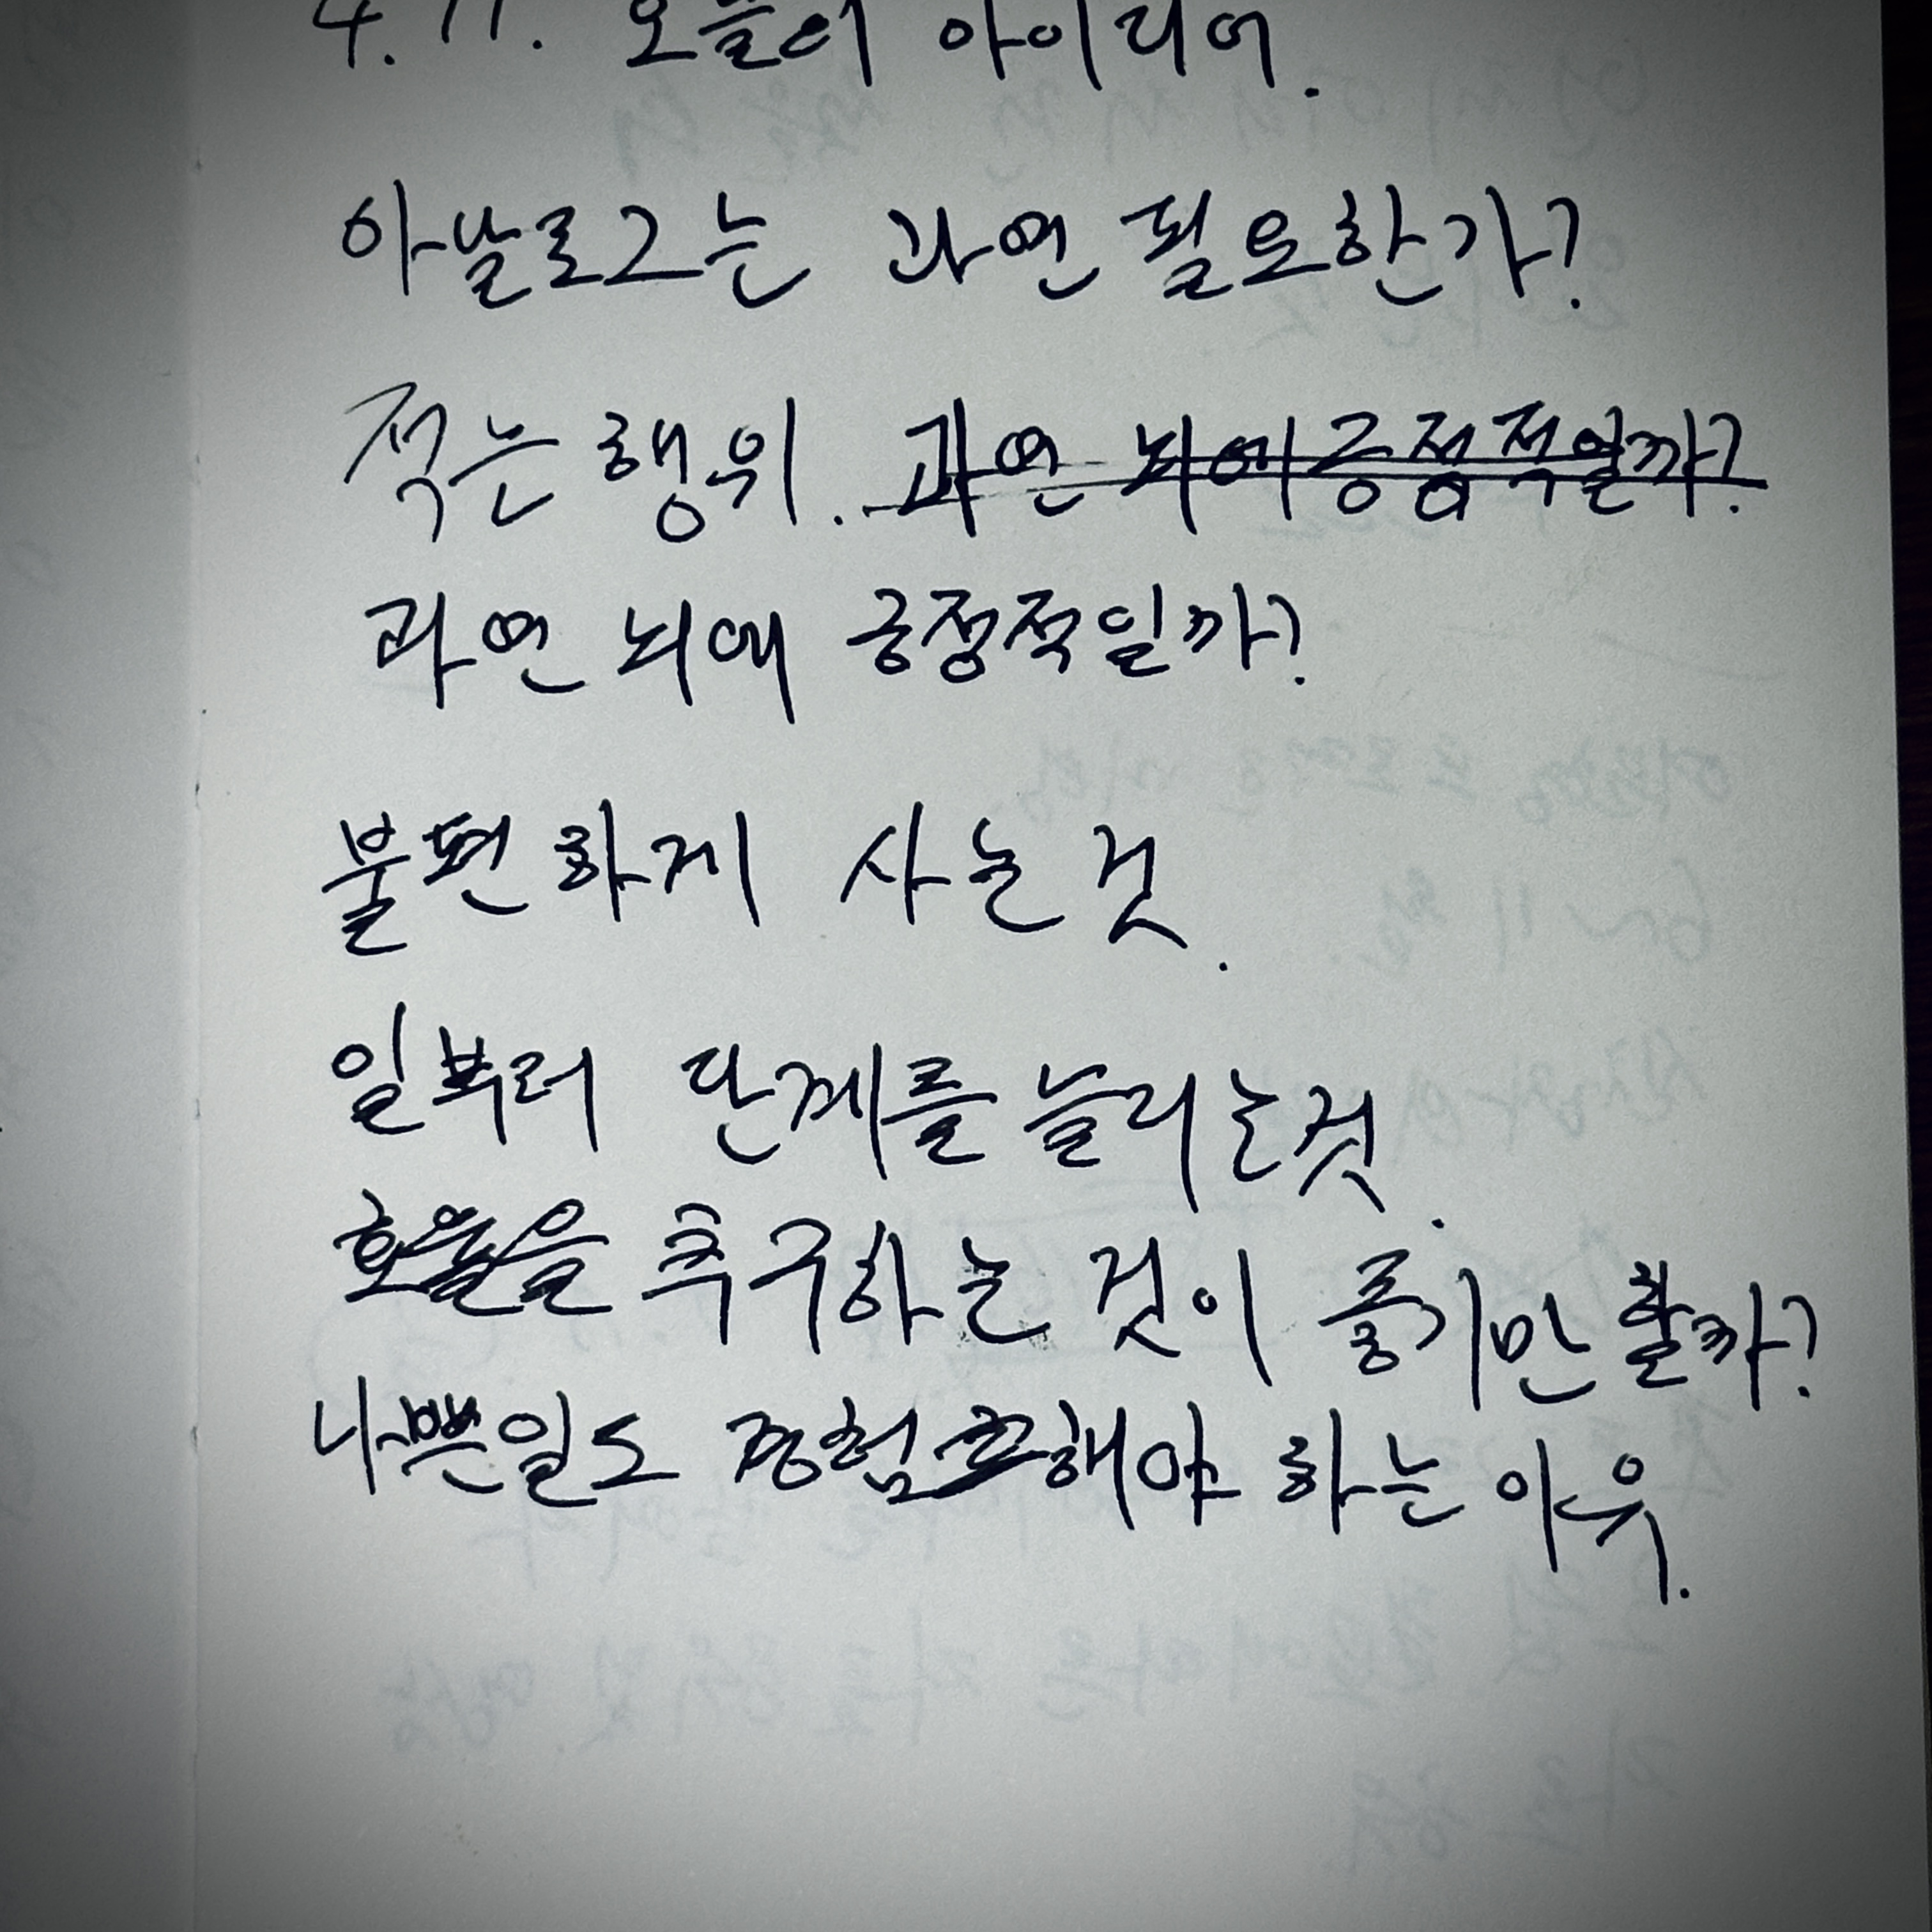 4.11. 오늘의 아이디어.
아날로그는 과연 필요한가?
적는 행위. 과연 뇌에 긍정적일까?
과연 뇌에 긍정적일까?
불편하게 사는 것.
일부러 단계를 늘리는것.
효율을 추구하는 것이 좋기만 할까?
나쁜일도 경험해야 하는 이유.